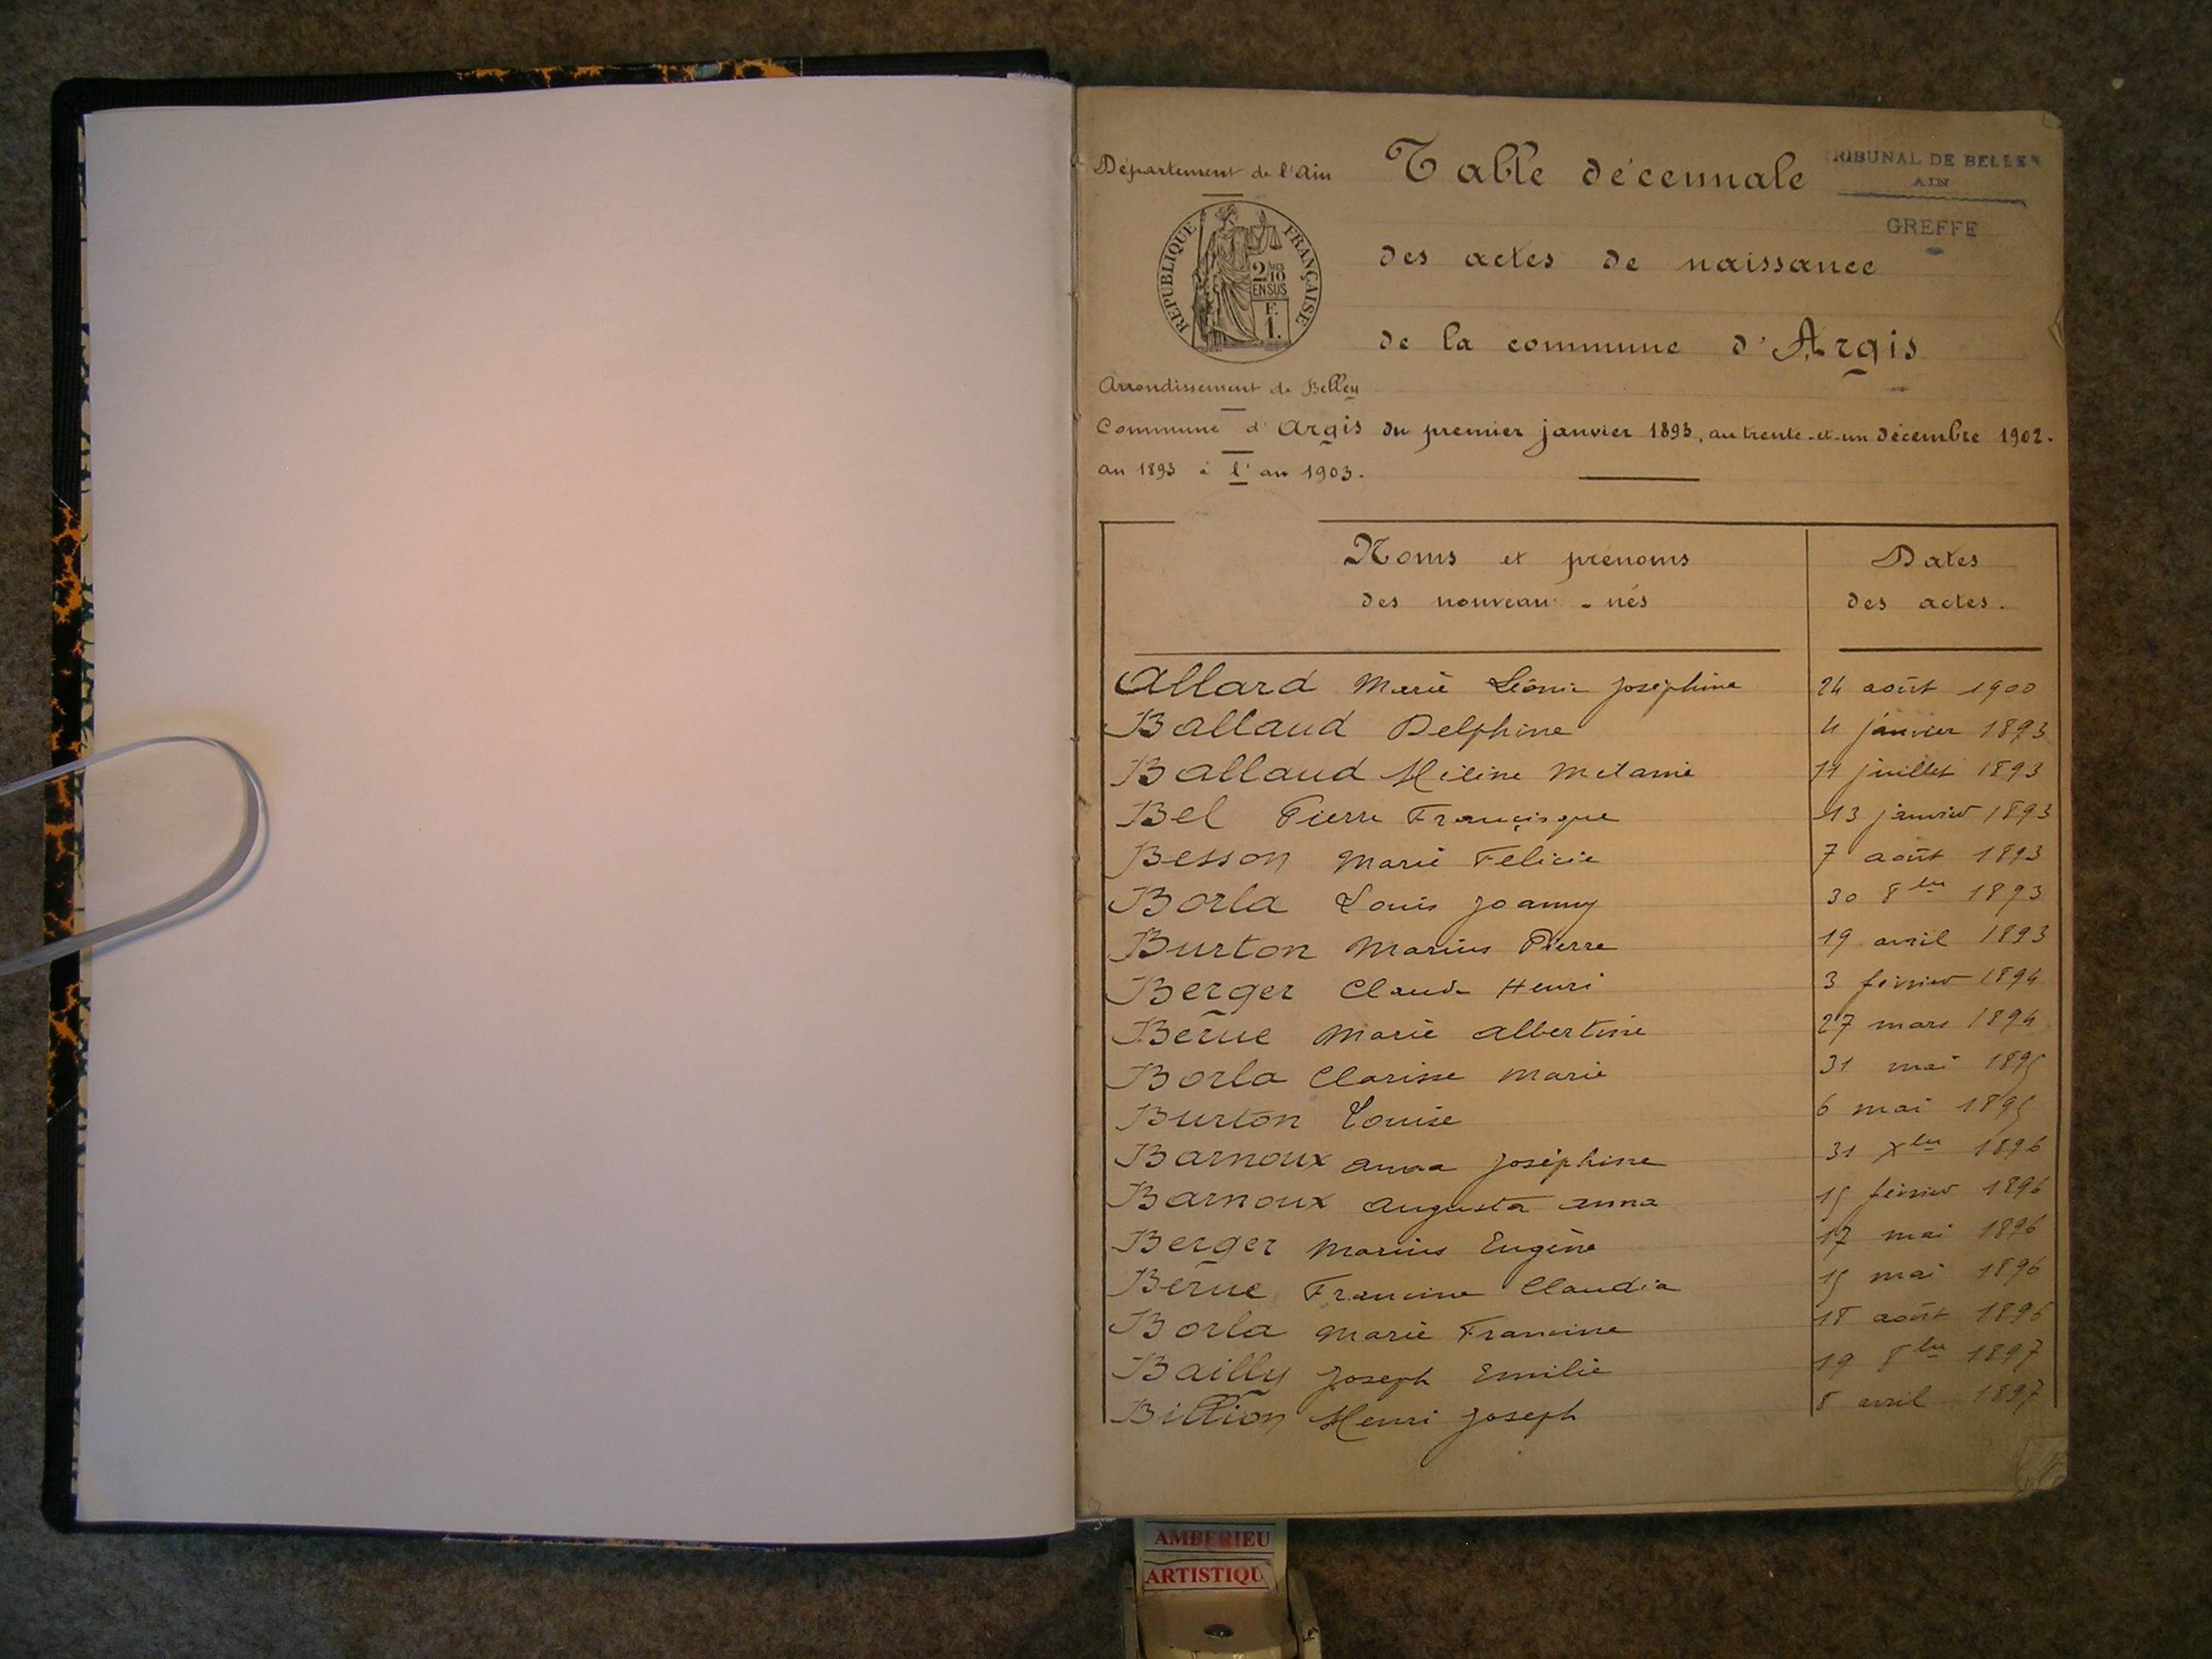 Département de l'Ain
Table décennale
TRIBUNAL DE BELLEY
AIN
GREFFE
des actes de naissance
de la commune d'Argis
REPUBLIQUE FRANÇAISE
2/10
EN SUS
F.
1.
Arrondissement de Belley
Commune d'Argis du premier janvier 1893, au trente-et-un décembre 1902.
an 1893 à l'an 1903.
Noms et prénoms Dates
des nouveau-nés des actes.
Allard Marie Léonie Joséphine 24 août 1900
Balland Delphine 4 janvier 1893
Balland Hélène Mélanie 11 juillet 1893
Bel Pierre Françisque 13 janvier 1893
Besson Marie Felicie 7 août 1893
Borla Louis Joanny 30 8bre 1893
Burton Marius Pierre 19 avril 1893
Berger Claude Henri 3 février 1894
Berne Marie Albertine 27 mars 1894
Borla Clarisse Marie 31 mai 1895
Burton Louise 6 mai 1895
Barnoux Anna Joséphine 31 Xbre 1896
Barnoux Augusta Anna 15 février 1896
Berger Marius Eugène 17 mai 1896
Berne Francine Claudia 15 mai 1896
Borla Marie Francine 18 août 1896
Bailly Joseph Emilie 19 8bre 1897
Billion Henri Joseph 8 avril 1897
AMBERIEU
ARTISTIQU